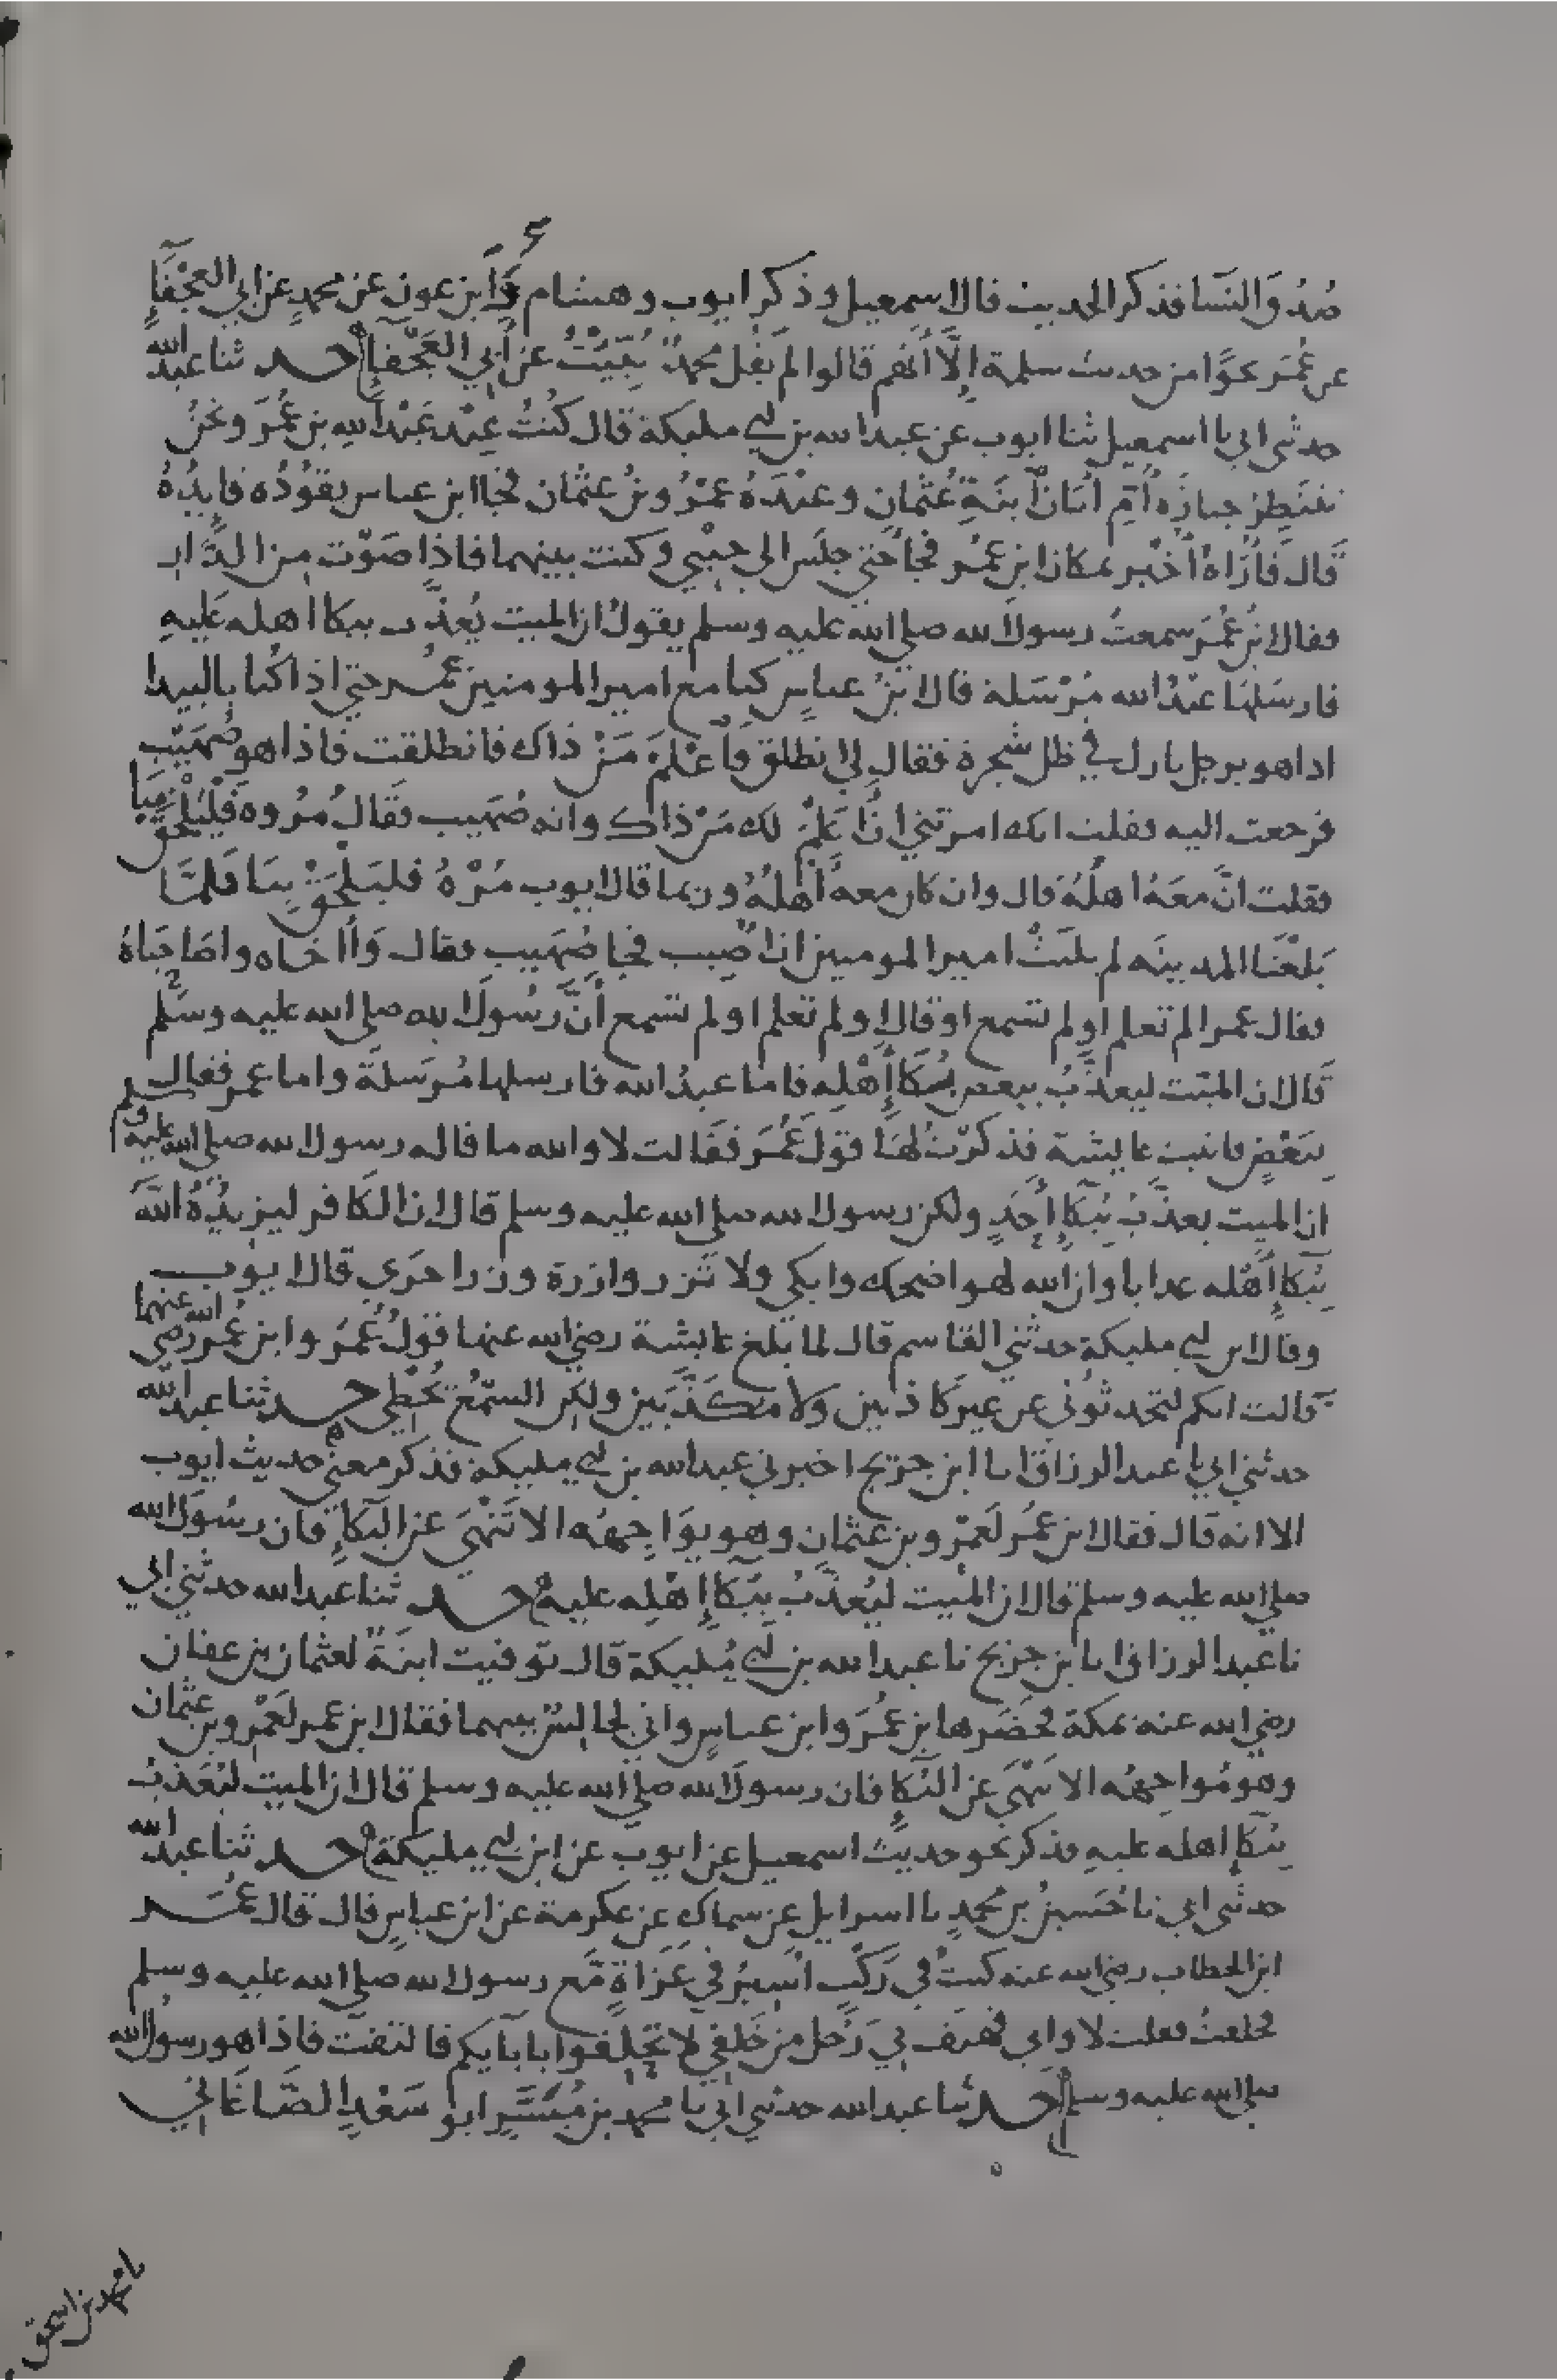 صُدُ وَالنسَا فذكر الحديث قال اسمعيل وذكر ايوب وهشام وَابن عون عن محمدٍ عن ابي العجْفآءِ
عن عُمَر نحوًا من حديث سلمة اِلَّا اَنهم قالوا لم يقل محمدٌ نُبِّيْتُ عن اَبي العَجْفآءِ حـد ثنا عبد الله
حدثني ابي نا اسمعيل ثنا ايوب عن عبد الله بن ابي مليكة قال كُنْتُ عِنْد عَبْد اللهِ بن عُمَرَ ونحنُ
ننتَظِرُ جنازَه اُمِّ اَبَانَ اَبنَةِ عُثمان وعنْدَهُ عمْرُو بنُ عثمان فجا ابن عباس يقوُدُه قايِدُهُ
قال فاُرَاهُ اُخْبر بمكان ابن عمُر فجآ حتي جلَس الي جنْبي وكنت بينهما فاذا صَوْت مِن الدَّار
فقال ابنُ عُمَر سمعتُ رسول الله صلي الله عليه وسلم يقولُ ان الميت يُعذَّب ببكا اهله عَلَيهِ
فارسَلهَا عبْدُ الله مُرْسَلة قال ابنُ عباسٍ كنا مع امير المومنين عمُر حتي اذا كُنا بالبيدا
اذا هو برجل نازل في ظل شجرة فقال لي انطلق فاَعْلمَ مَنْ ذاك فانطلقت فاذا هو صُهَيْب
فرجعت اليه فقلت انك امرتني انْ اَعْلمَ لك مَنْ ذاك وانه صُهَيب فقالُ مُرُوه فَلْيَلْحَقْ بِنَا
فقلت انَّ معَهُ اهلُهُ قال وان كان معه اَهلُهُ وربما قال ايوب مُرْهُ فليَلْحَقْ بِنَا فلمَّا
بَلغْنَا المدينَه لم يلبَثْ امير المومنين انْ اُصِيب فجا صُهَيب فقال وَا اَخَاه واصَاحِبَاهُ
فقال عمر الم تعلم اَو لم تسمع او قال او لم تعلم او لم تسمع اَنَّ رسُولَ الله صلي الله عليه وسلم
قال ان الميّت ليعذّبُ ببعض بُكاَءِ اَهْلِه فاما عبدُ الله فارسلها مُرسَلَةً واما عمر فقال
بِبَعْضٍ فاتيت عايشة فذكرْتُ لهَا قوَلَ عُمَر فقَالت لا والله ما قاله رسول الله صلي الله عليه وسلم
ان الميت يعذّبُ بِبُكآءِ اَحَدٍ ولكن رسول الله صلي الله عليه وسلم قال ان الكَافر ليزيدُهُ اللهَ
بِبُكآءِ اَهْله عذابا وان الله لهو اضحك وابكي ولا تَزر وازرة وِزر اخرَي قال ايوب
وقال ابن ابي مليكة حدثني القاسم قال لما بلغ عايشة رضي الله عنها قولُ عُمَر وابن عُمر رضي الله عنهما
قالت انكم لتحدثوُني عن غير كاذبين ولا مكَذَّبَين ولكن السمْعُ يُخْطِي حـد ثنا عبد الله
حدثني ابي نا عبد الرزاق انا ابن جريج اخبرني عبد الله بن ابي مليكة فذكر معني حديث ايوب
الا انه قال فقال ابن عمُر لعمْرو بن عثمان وهو يوَاجِههُ الا تَنْهَي عن البُكآءِ فان رسُولَ الله
صلي الله عليه وسلم قال ان الميّت ليُعذَّبُ ببُكآءِ اهْلِه عليه حـد ثنا عبد الله حدثني ابي
نا عبد الرزاق انا ابن جريج نا عبد الله بن ابي مُليكة قال توفيت ابنَةٌ لعثمان بن عفان
رضي الله عنه بمكة فحضَرها ابن عمُر وابن عباسٍ واني لجالسٌ بينهما فقال ابن عمر لعَمْرو بن عثمان
وهو مُواجهُه الا تنْهَي عن البُكآءِ فان رسولَ الله صلي الله عليه وسلم قال ان الميت ليُعَذبُ
بِبُكآءِ اهله عليهِ فذكر نحو حديث اسمعيل عن ايوب عن ابن ابي مليكة حـد ثنا عبد الله
حدثني ابي نا حُسَينُ بن محمدٍ نا اسرايل عن سماكٍ عن عكرمة عن ابن عباسٍ قال قال عُمَر
ابن الخطاب رضي الله عنه كنتُ في رَكْب اَسيرُ في غَزَاةٍ مَع رسول الله صلي الله عليه وسلم
فحلفتُ فقلت لا وابي فهتف بِي رَجل من خَلفي لا تحلِفوا باَبايكم فالتفتّ فاذا هو رسول الله
صلي الله عليه وسلم حـد ثنا عبد الله حدثني ابي نا محمد بن مُيَسَّر ابو سَعْدٍ الصَّاغاني
نا محمد بن اسحق